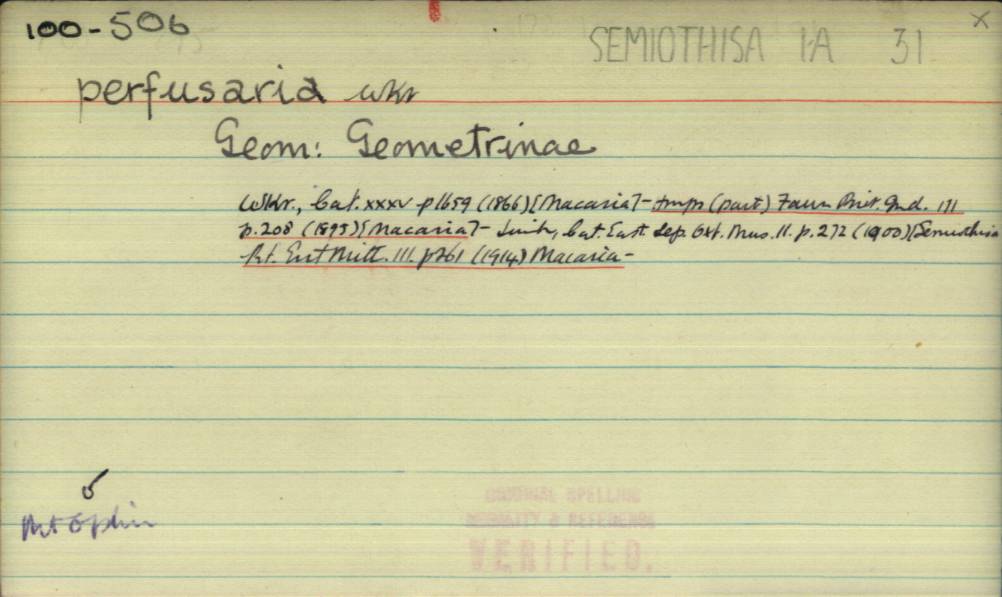 100-506
SEMIOTHISA 1·A 31
x
perfusaria wkr
Geom: Geometrinae
Wkr., Cat. xxxv p 1659 (1866) [Macaria] - Hmps (part) Faun Brit. Ind. III
p. 208 (1895) [Macaria] - Swinh, Cat. East Lep. Oxf. Mus. II. p. 272 (1900) [Semiothisa
Pt. Ent Mitt. III. p261 (1914) Macaria -
ORIGINAL SPELLING
& REFERENCE
VERIFIED.